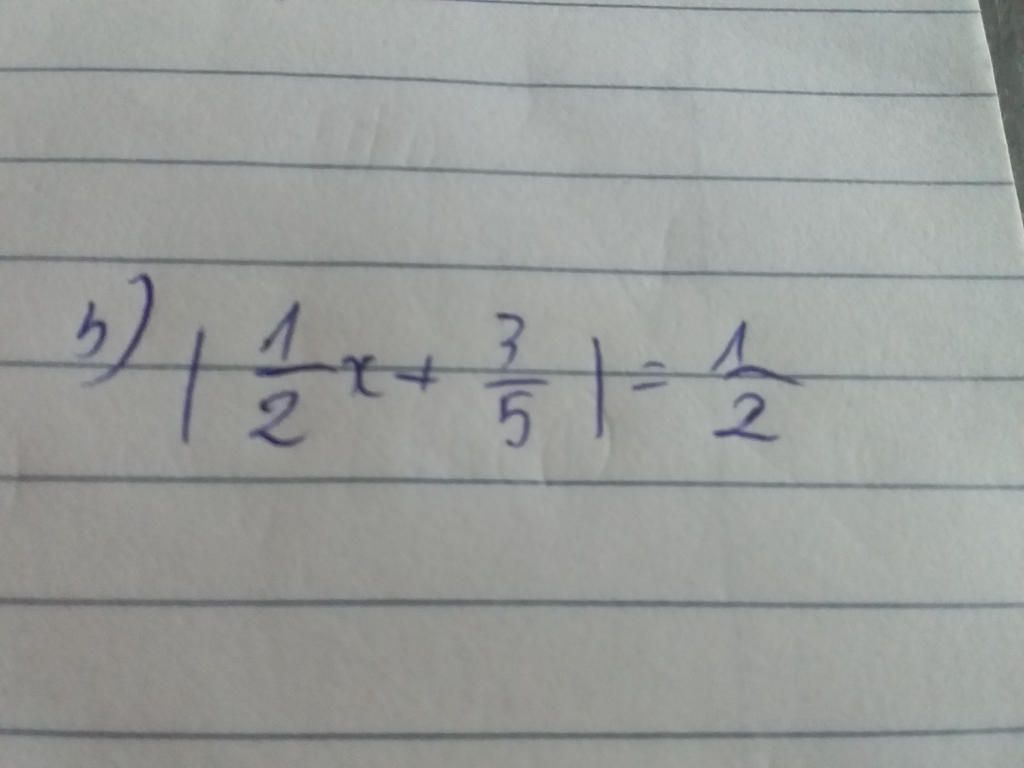 b) | 1/2 x + 3/5 | = 1/2